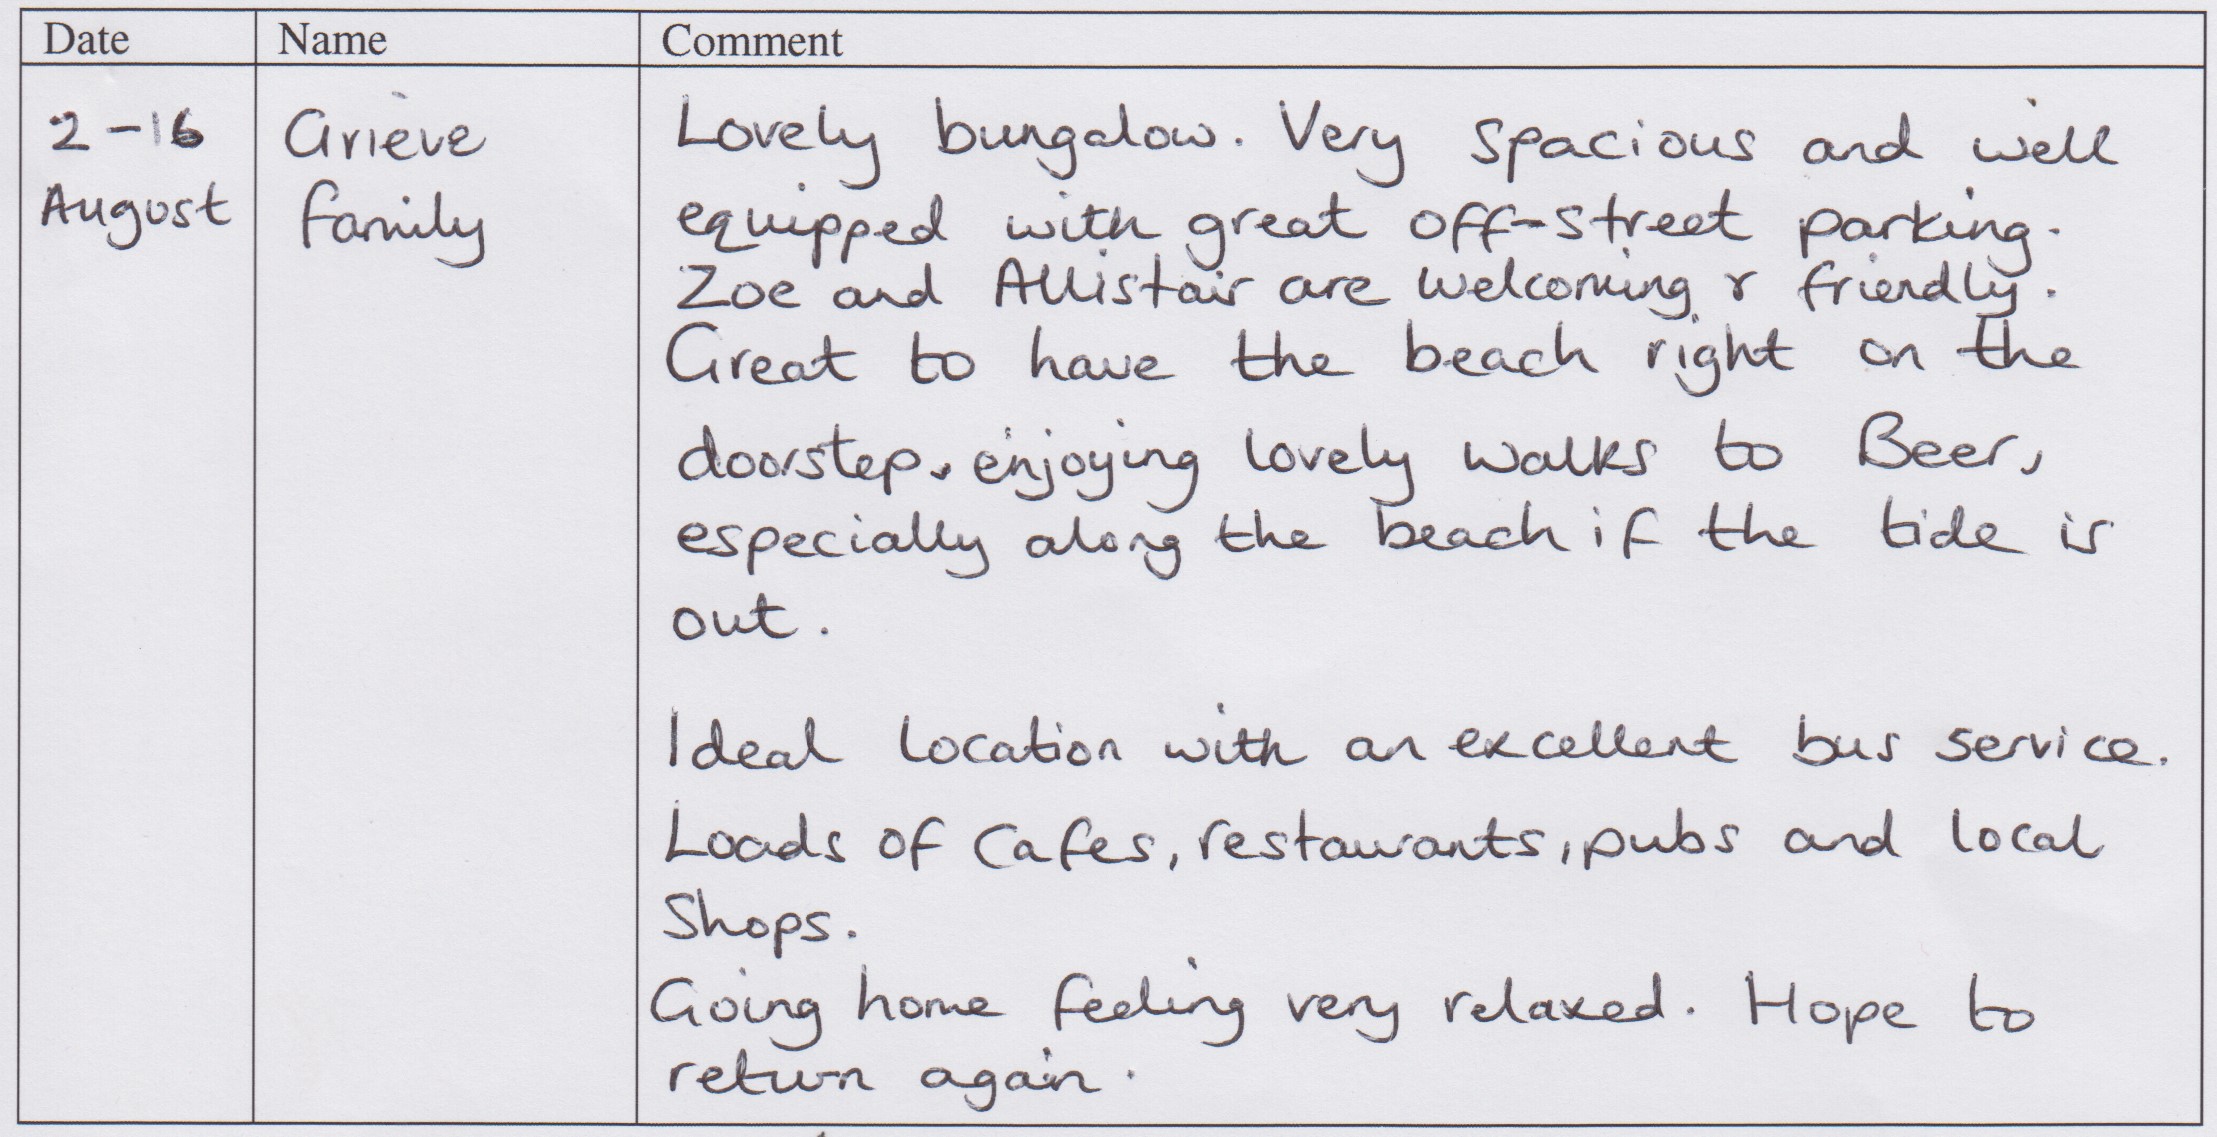 Date Name Comment
2-16 Grieve Lovely bungalow. Very spacious and well
August family equipped with great off-street parking.
Zoe and Allistair are welcoming & friendly.
Great to have the beach right on the
doorstep, enjoying lovely walks to Beer,
especially along the beach if the tide is
out.
Ideal location with an excellent bus service.
Loads of cafes, restaurants, pubs and local
shops.
Going home feeling very relaxed. Hope to
return again.